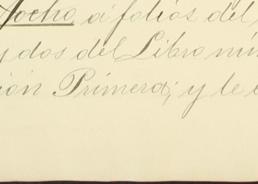 ocho a folios del
y dos del Libro nú
ión Primera; y le